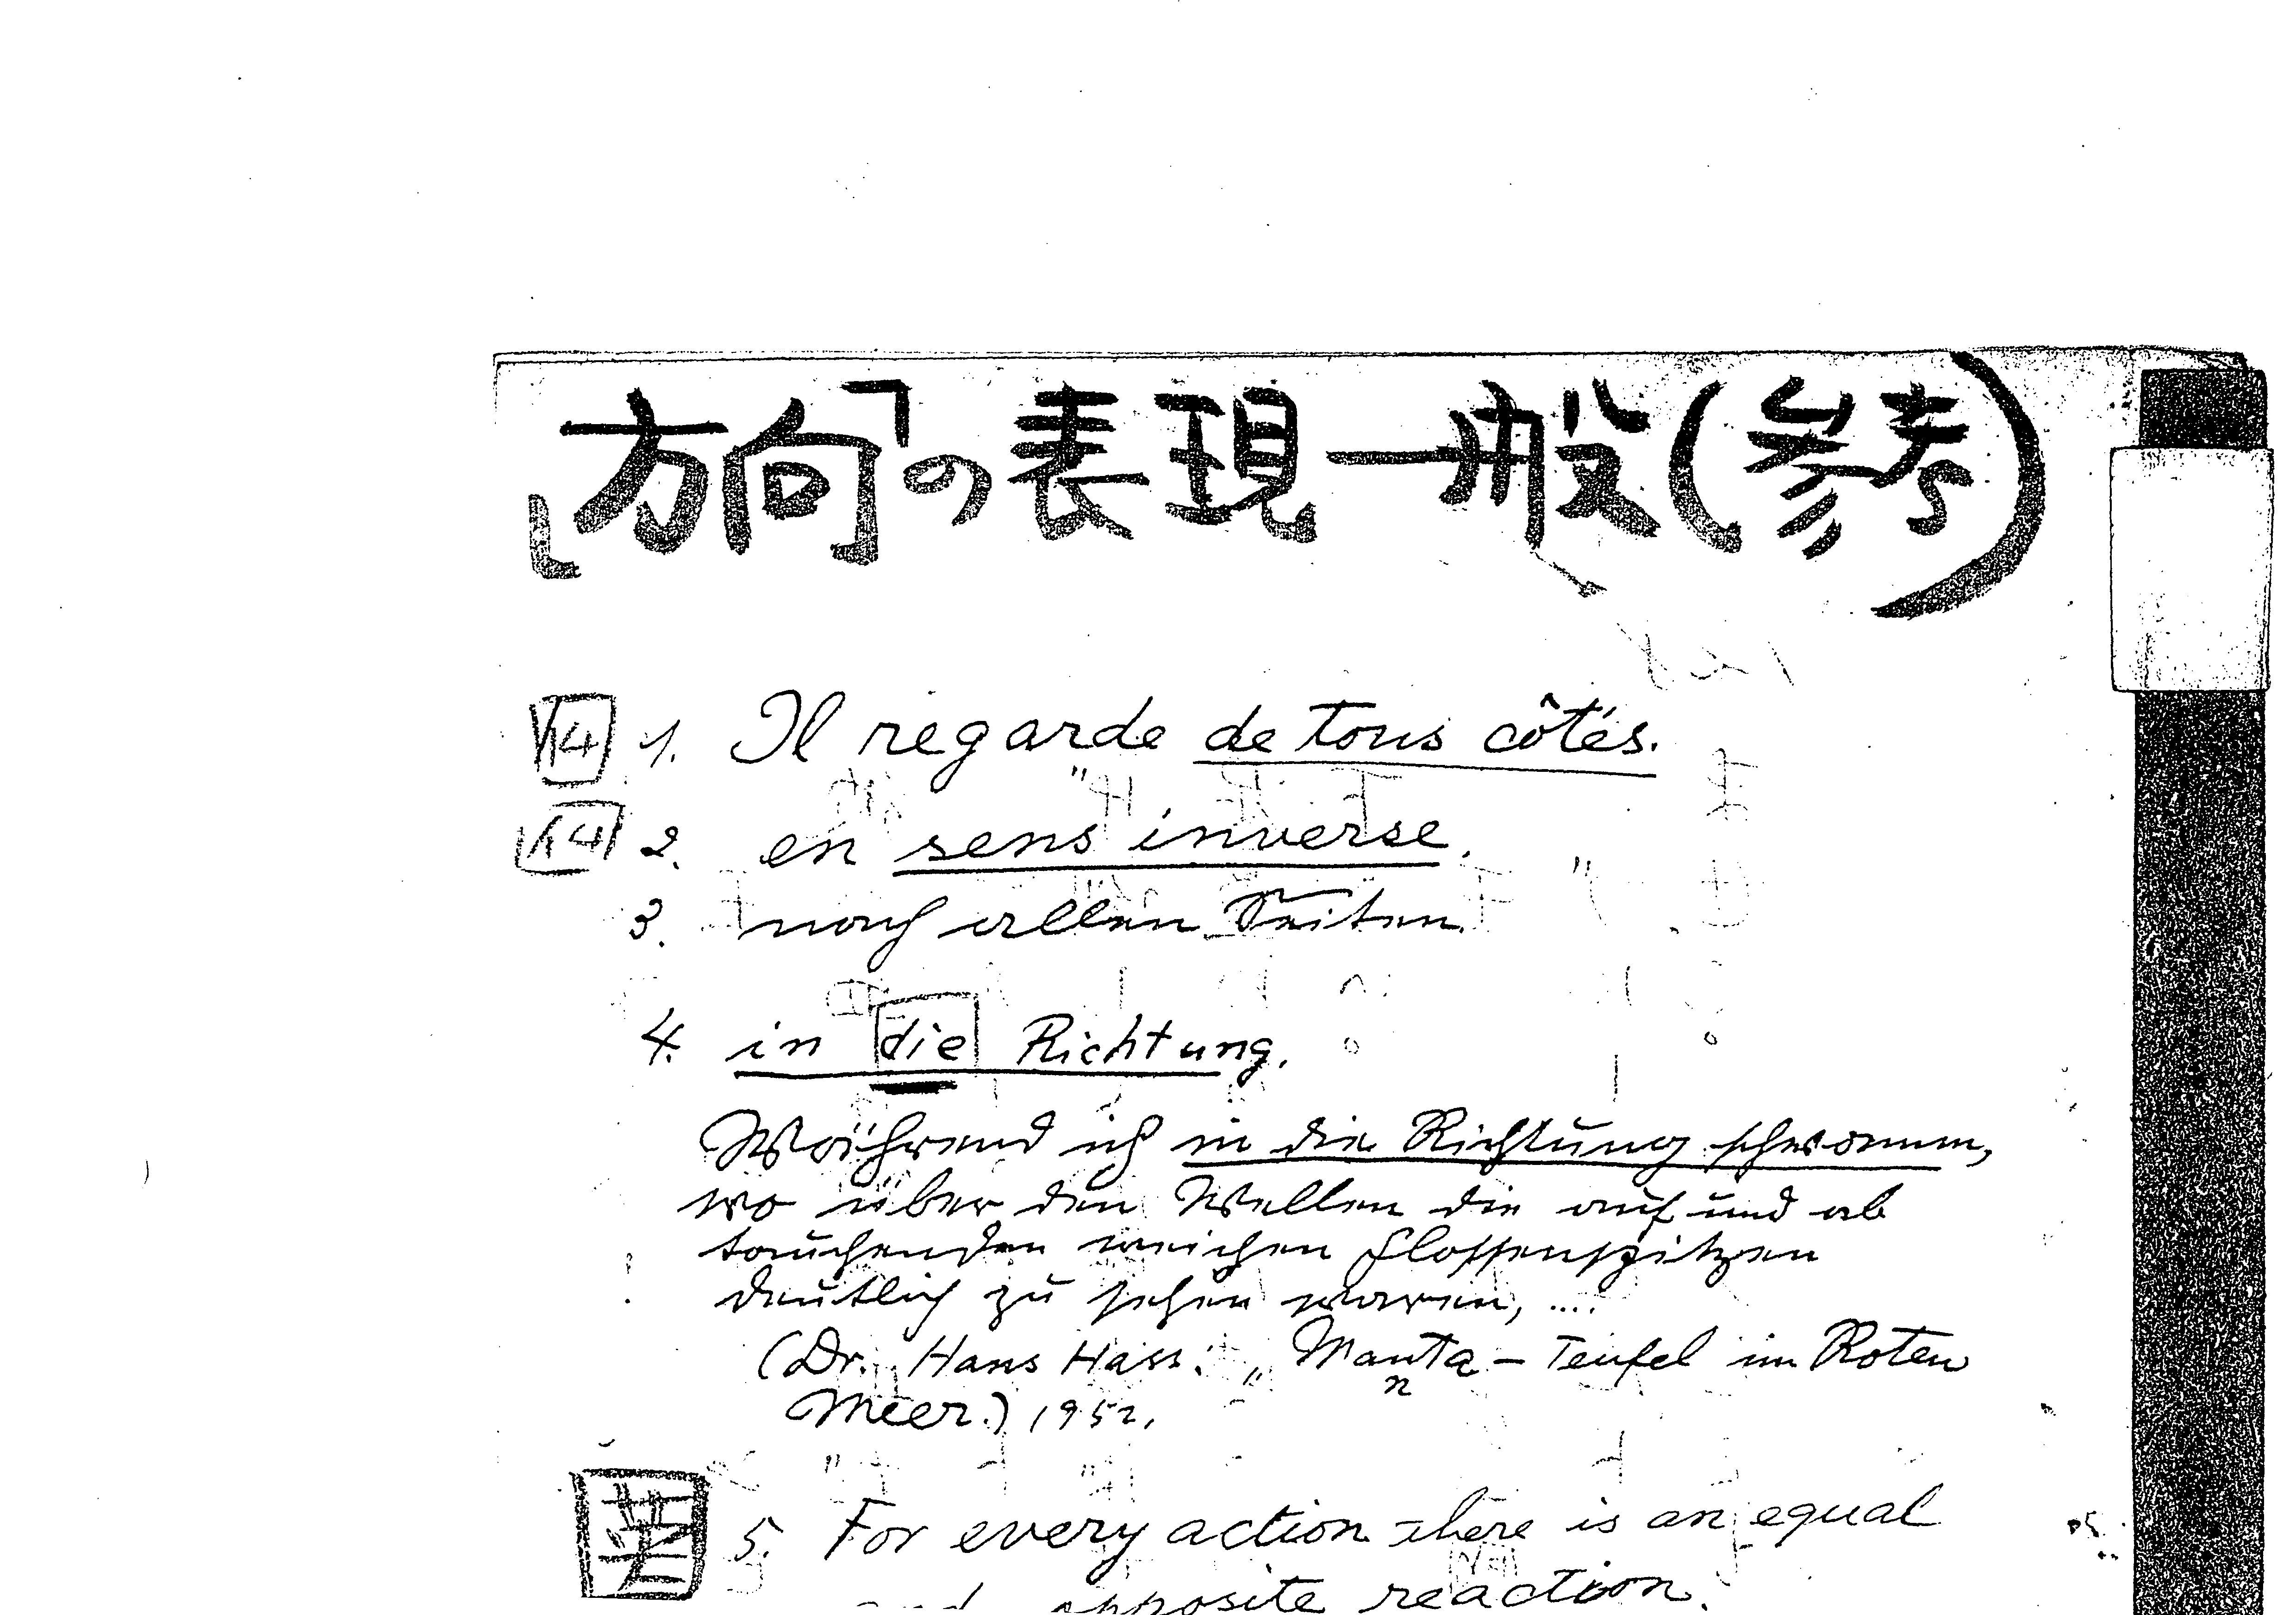 「方向」の表現一般(参考)
14 1. Il regarde de tous côtés.
14 2. en sens inverse.
3. nach allen Seiten.
4. in die Richtung.
Während ich in die Richtung schwamm,
wo über den Wellen die auf und ab
tauchenden weichen Flossenspitzen
deutlich zu sehen waren, ....
(Dr. Hans Hass: „Manta - Teufel im Roten
n
Meer.) 1952.
英 5. For every action there is an equal
and opposite reaction.